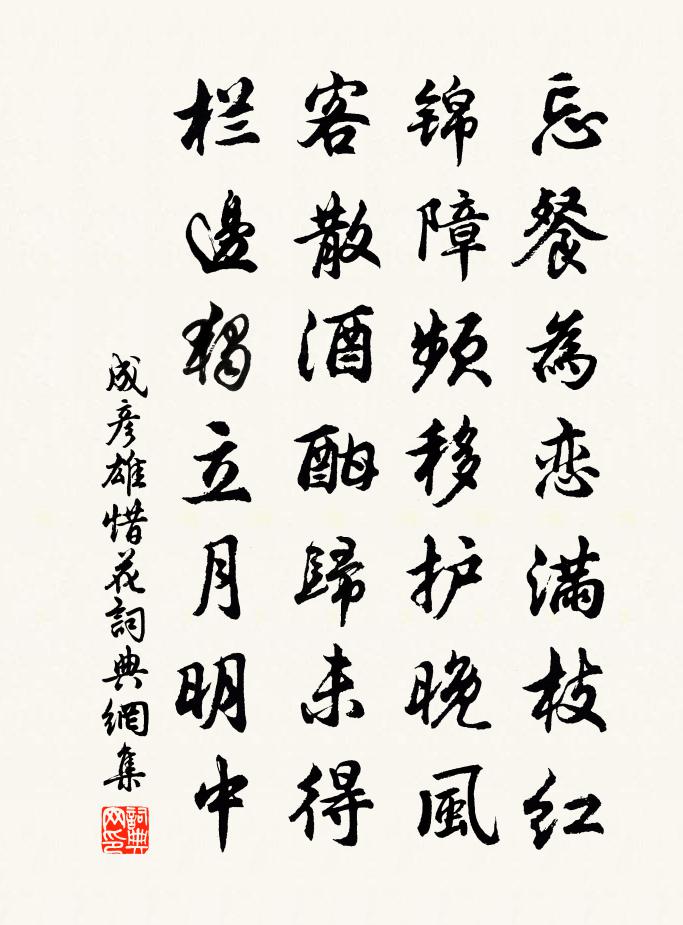 忘餐為恋滿枝红
锦障频移护晚風
客散酒酣歸未得
栏邊獨立月明中
成彦雄惜花詞典網集
詞典网印